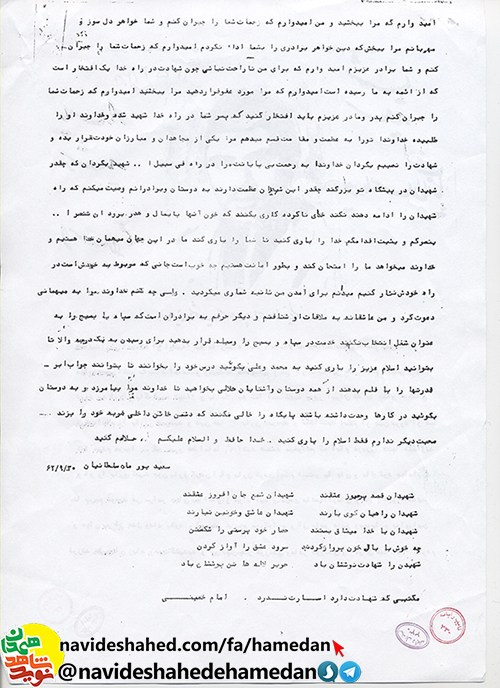 امید وارم که مرا ببخشید و من امیدوارم که زحمات شما را جبران کنم و شما خواهر دل سوز و
مهربانم مرا ببخش که دین خواهر برادری را بشما ادا نکردم امیدوارم که زحمات شما را جبران
کنم و شما برادر عزیزم امید وارم که برای من ناراحت نباشی چون شهادت در راه خدا یک افتخار است
که از ائمه به ما رسیده است امیدوارم که مرا مورد عفو قرار دهید مرا ببخشید امیدوارم که زحمات شما
را جبران کنم پدر و مادر عزیزم باید افتخار کنید که پسر شما در راه خدا شهید شده و خداوند او را
طلبیده خداوندا تورا به عظمت و مقامت قسم میدهم مرا یکی از مجاهدان و مبارزان خودت قرار بده و
شهادت را نصیبم بگردان خداوندا به رحمت بی پایانت مرا در راه فی سبیل ا .. شهید بگردان که چقدر
شهیدان در پیشگاه تو بزرگند چقدر این شهیدان عظمت دارند به دوستان و برادرانم وصیت میکنم که راه
شهیدان را ادامه دهند نکند خدای ناکرده کاری بکنند که خون آنها پایمال و هدر برود ان تنصرا ..
ینصرکم و یثبت اقدامکم خدا را یاری کنید تا شما را یاری کند ما در این جهان میهمان خدا هستیم و
خداوند میخواهد ما را امتحان کند و بطور امانت هستیم چه خوب است جانی که مربوط به خودش است در
راه خودش نثار کنیم میدانم برای آمدن من ثانیه شماری میکردید . ولی چه کنم خداوند مرا به میهمانی
دعوت کرد و من عاشقانه به ملاقات او شتافتم و دیگر حرفم به برادران است که سپاه یا بسیج را به
عنوان شغل انتخاب نکنند خدمت در سپاه و بسیج را وسیله قرار بدهید برای رسیدن به یک درجه والا تا
بتوانید اسلام عزیز را یاری کنید به محمد و علی بگوئید درس خود را بخوانند تا بتوانند جواب ابر -
قدرتها را با قلم بدهند از همه دوستان و آشنایان حلالی بخواهید تا خداوند مرا بیامرزد و به دوستان
بگوئید در کارها وحدت داشته باشند پایگاه را خالی نکنند که دشمن خائن داخلی ضربه خود را بزند
صحبت دیگر ندارم فقط اسلام را یاری کنید . خدا حافظ والسلام علیکم . . حلالم کنید
سعید پور ماه سلطانیان ۶۲/۹/۳۰
شهیدان قصه پرسوز عشقند شهیدان شمع جان افروز عشقند
شهیدان راهیان کوی یارند شهیدان عاشق و خونین نگارند
شهیدان با خدا میثاق بستند حصار خود پرستی را شکستن
چه خوش با بال خون پرواز کردند سرود عشق را آواز کردن
شهیدن را شهادت نوششان باد حریر لاله ها تن پوششان باد
مکتبی که شهادت دارد اسارت ندارد . امام خمینی
navideshahed.com/fa/hamedan
@navideshahedehamedan
نوید شاهد همدان